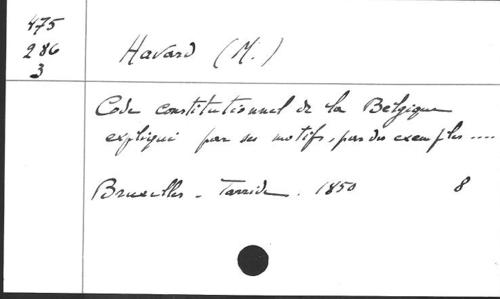 475
286
3
Havard (M.)
Code constitutionnel de la Belgique
expliqué par ses motifs, par des exemples ....
Bruxelles - Tarride. 1850 8